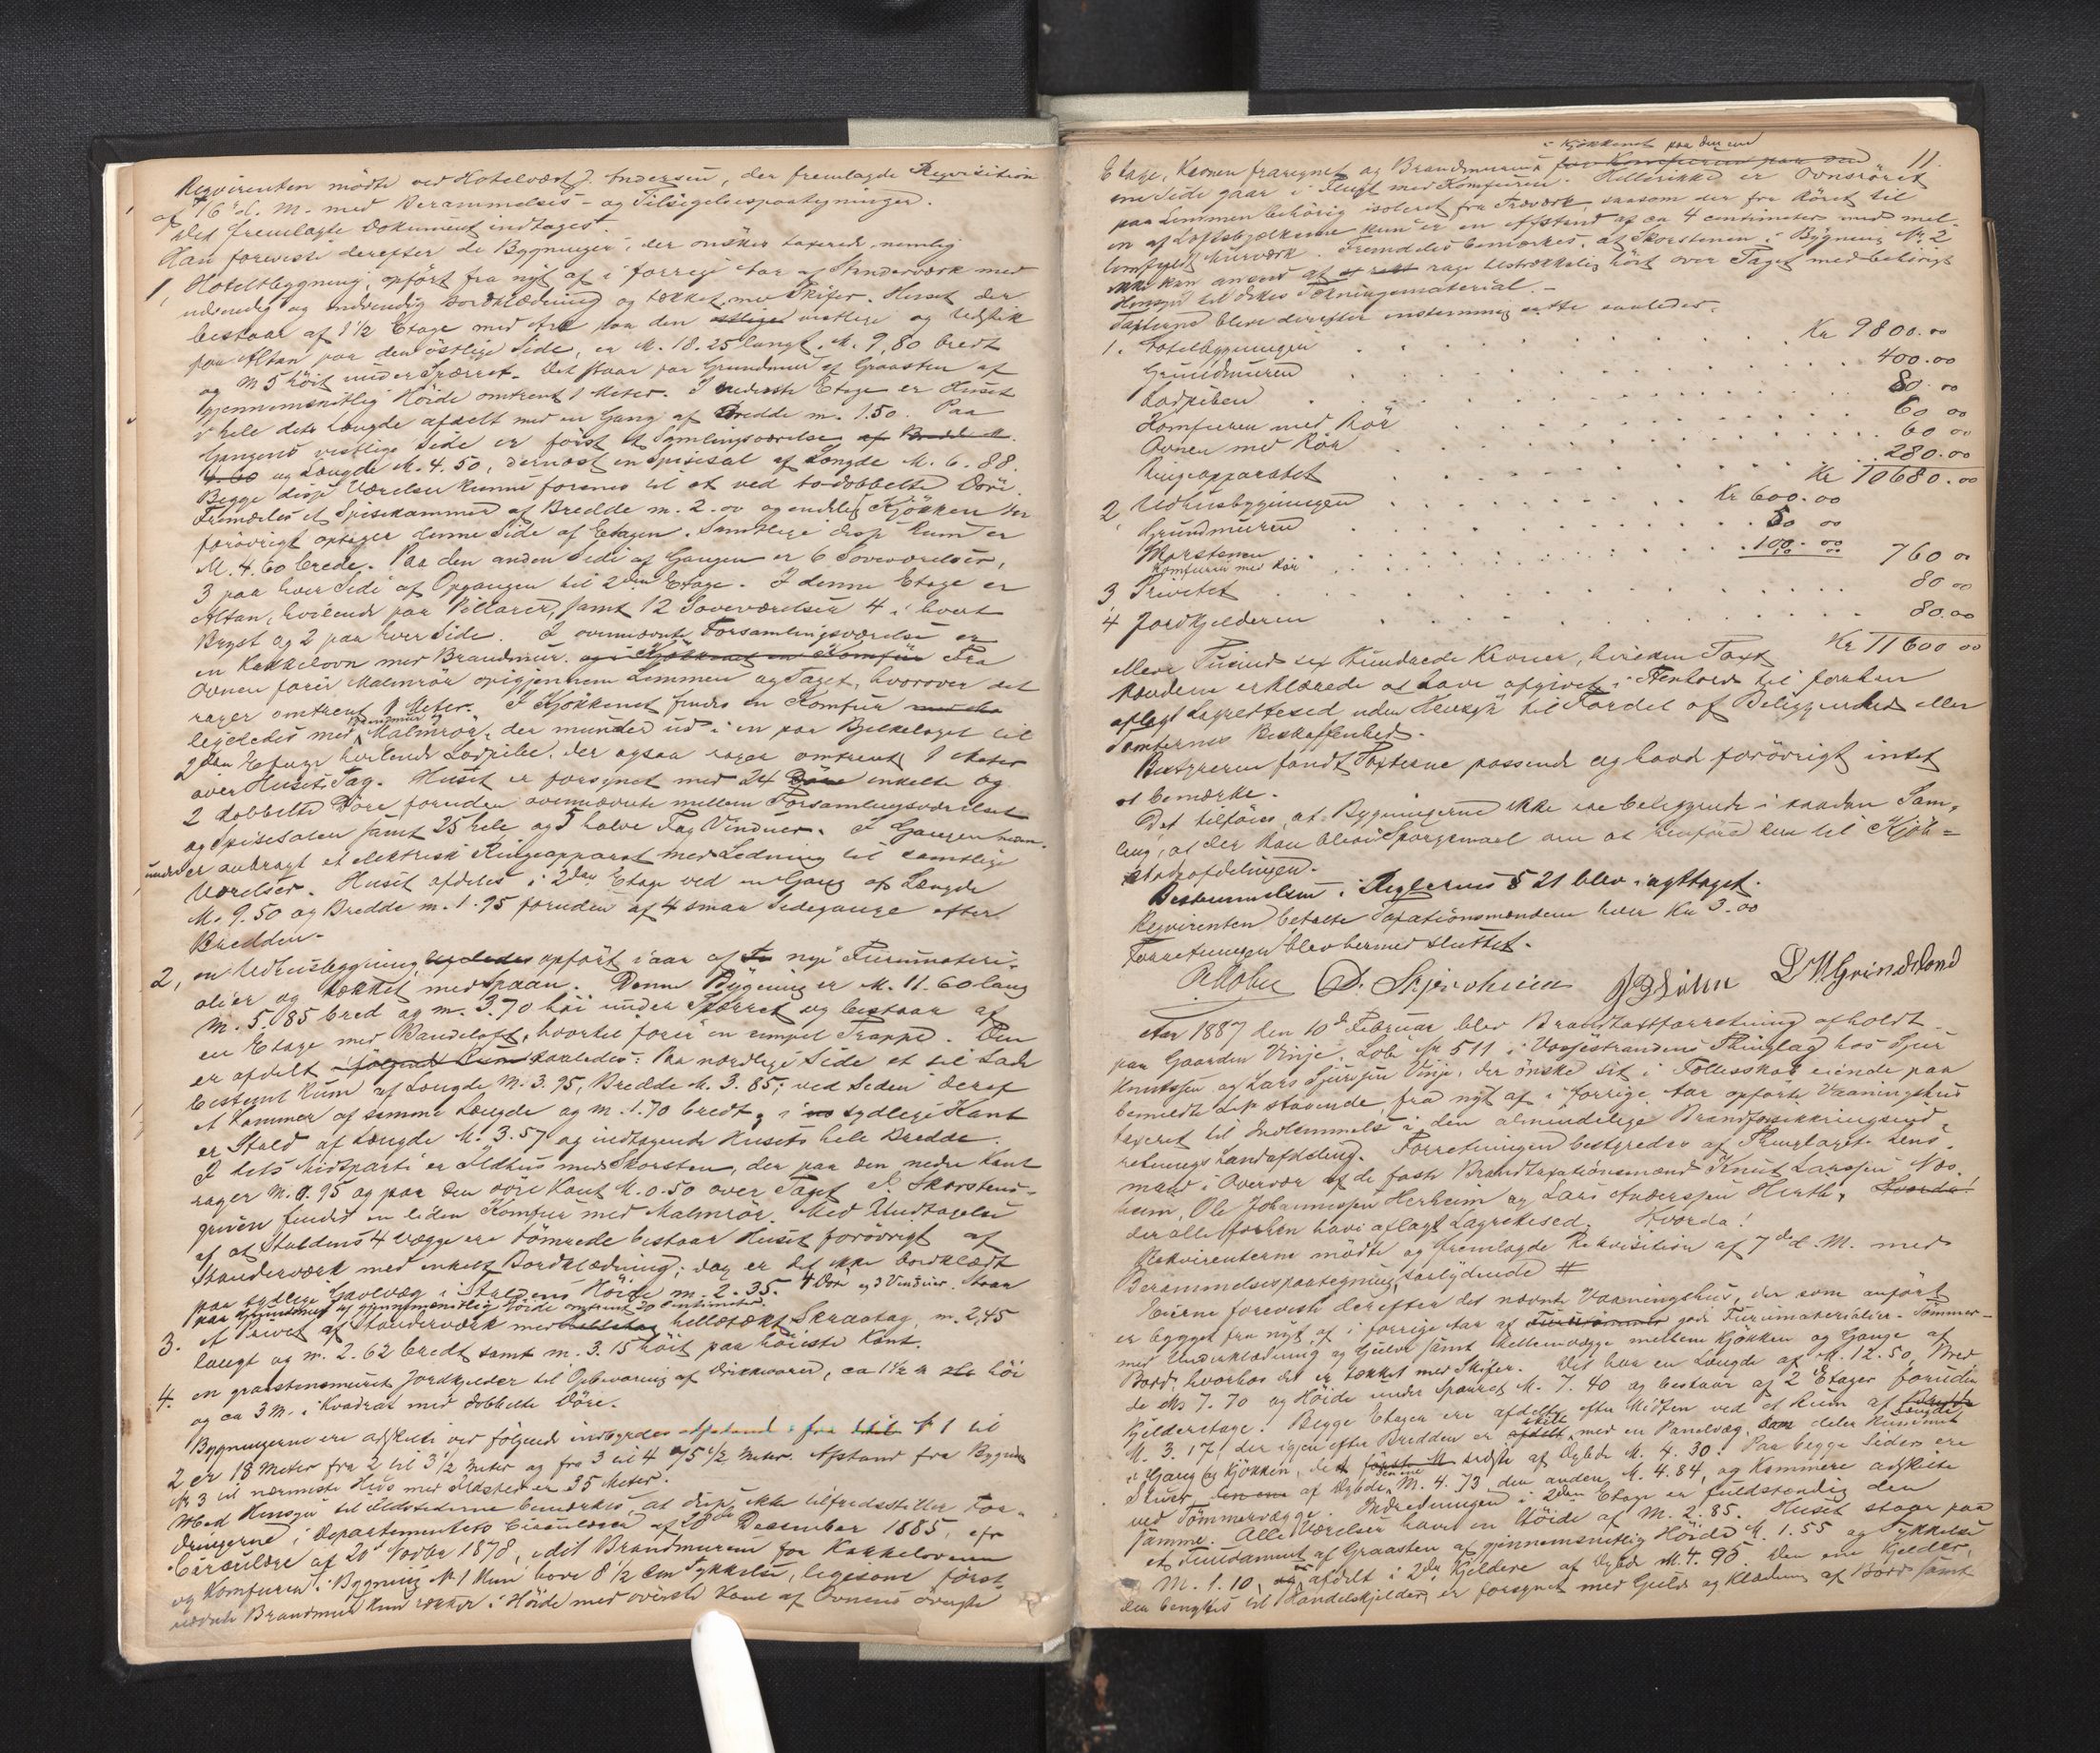 Reqvirenten mødte ved Hotelvært J. Andersen, der fremlagde Reqvisition
af 6te d. M. med Berammelses- og Tilsigelsespaategninger.
Det fremlagte Dokument indtages.
Han foreviste derefter de Bygninger, der ønskes taxerede, nemlig
1, Hotelbygning, opført fra nyt af i forrige Aar af Stenderværk med
udvendig og indvendig Bordklædning og tækket med Skifer. Huset der
bestaar af 1 1/2 Etage med Ark paa den østlige vestlige og Udstik
paa Altan paa den østlige Side, er M. 18.25 langt, M. 9,80 bredt
og M 5 høit under Spærret. Det staar paa Grundmur af Graasten af
gjennemsnitlig Høide omtrent 1 Meter. I nederste Etage er Huset
i hele dets Længde afdelt med en Gang af Bredde m. 1.50. Paa
Gangens vestlige Side er først et Samlingsværelse af Bredde M.
4.60 og Længde M. 4.50, dernæst en Spisesal af Længde M. 6.88.
Begge disse Værelser kunne forenes til et ved to dobbelte Døre.
Fremdeles et Spisekammer af Bredde m. 2.00 og endelig Kjøkken der
forøvrigt optager denne Side af Etagen. Samtlige disse Rum er
M. 4.60 brede. Paa den anden Side af Gangen er 6 Soveværelser,
3 paa hver Side af Opgangen til 2den Etage. I denne Etage er
Altan, hvilende paa Pillarer, samt 12 Soveværelser 4 i hvert
Bryst og 2 paa hver Side. I ovennævnte Forsamlingsværelse er
en Kakkelovn med Brandmur. og i Kjøkkenet en Komfur Fra
Ovnen fører Malmrør opigjennem Lemmen og Taget, hvorover det
rager omtrent 1 Meter. I Kjøkkenet findes en Komfur med
ligeledes med Brandmur og Malmrør, der munder ud i en paa Bjelkelaget til
2den Etage hvilende Ladpibe, der ogsaa rager omtrent 1 Meter
over Husets Tag. Huset er forsynet med 24 Døre enkelte og
2 dobbelte Døre foruden ovennævnte mellem Forsamlingsværelset
og Spisesalen samt 25 hele og 5 halve Fag Vinduer. I Gangen
er anbragt et elektrisk Ringeapparat med Ledning til samtlige
Værelser. Huset afdeles i 2den Etage ved en Gang af Længde
M. 9.50 og Bredde m. 1.95 foruden af 4 smaa Sidegange efter
Bredden.
2, en Udhusbygning ligeledes opført iaar af nye Furumateri-
alier og tækket med spaan. Denne Bygning er M. 11.60 lang
M. 5.85 bred og m. 3.70 høi under Spærret og bestaar af
en Etage med Vandeloft, hvortil fører en simpel Trappe. Den
er afdelt i følgende Rum saaledes: Paa nordlige Side et til Lade
bestemt Rum af Længde M. 3.95, Bredde M. 3.85; ved Siden deraf
et Kammer af samme Længde og m. 1.70 bredt, i sydlige Kant
er Stald af Længde M. 3.57 og indtagende Husets hele Bredde.
I dets Midtparti er Ildhus med Skorsten, der paa den nedre Kant
rager M. 0.95 og paa den øvre Kant M. 0.50 over Taget. I Skorstens-
gruen findes en liden Komfur med Malmrør. Med Undtagelse
af at Staldens 4 Vægge ere tømrede bestaar Huset forøvrigt af
Stenderværk med enkelt Bordklædning; dog er det ikke bordklædt
paa sydlige Gavlvæg i Staldens Høide m. 2.35. 4 Døre og 3 Vinduer. Staar
paa Grundmur af gjennemsnitlig Høide omtrent 20 Centimeter.
3. et Privet af Stenderværk med helletækt Skraatag, m. 2,45
langt og m. 2.62 bredt samt m. 3.15 høit paa høieste Kant.
4. en graastensmuret Jordkjelder til Opbevaring af Drikkevarer, ca 1 1/2 m høi
og ca 3 M. i Kvadrat med dobbelte Døre.
Bygningerne ere adskilte ved følgende indbyrdes Afstand: fra № 1 til
2 er 18 Meter fra 2 til 3 1/2 Meter og fra 3 til 4 1/2 Meter. Afstand fra Bygning
№ 3 til nærmeste Hus med Ildsted er 35 Meter.
Med Hensyn til Ildstederne bemærkes, at disse ikke tilfredsstiller For-
dringerne i Departementets Cirkulære af 28de December 1885, cfr
Cirkulære af 20 Novbr 1878, idet Brandmuren for Kakkelovnen
og Komfuren i Bygning № 1 kun have 8 1/2 Cm Tykkelse, ligesom først-
nævnte Brandmur kun rækker i Høide med øverste Kant af Ovnens øverste
11.
i Kjøkkenet paa den ene
Etage, Kronen fraregnet og Brandmuren for Komfuren paa den
ene Side gaar i Flugt med Komfuren. Hellerikke er Ovnsrøret
paa Lemmen behørig isoleret fra Træværk, saasom der fra Røret til
en af Loftsbjælkerne kun er en Afstand af ca 4 centimeter med mel-
lemfyldt Murværk. Fremdeles bemærkes, at Skorstenen i Bygning № 2
ikke kan ansees at rage tilstrækkelig høit over Taget med behørigt
Hensyn til dets Tækningsmaterial.
Taxterne bleve derefter enstemmig satte saaledes:
1. Hotelbygningen . . . Kr 9800.00
Grundmuren . . . 400.00
Ladpiben . . . 80.00
Komfuren med Rør . . . 60 00
Ovnen med Rør . . . 60 00
Ringeapparatet . . . 280.00
Kr 10680.00
2, Udhusbygningen . . . Kr 600.00
Grundmuren . . . 50 00
Skorstenen
Komfuren med Rør . . . 100.00 760 00
3, Privetet . . . 80 00
4 Jordkjelderen . . . 80.00
Kr 11600 00
elleve Tusind sex Hundrede Kroner, hvilken Taxt
Mændene erklærede at have afgivet i Henhold til forhen
aflagt Lagretteesed uden Hensyn til Fordel af Beliggenhed eller
Tomternes Beskaffenhed.
Bestyreren fandt Taxterne passende og havde forøvrigt intet
at bemærke.
Det tilføies, at Bygningerne ikke ere beliggende i saadan Sam-
ling, at der kan blive Spørgsmaal om at henføre dem til Kjøb-
stadafdelingen.
Bestemmelsen i Reglernes § 21 blev iagttaget.
Reqvirenten betalte Taxationsmændene hver Kr 3.00
Forretningen blev hermed sluttet.
D. Skjerveheim L N Grindeland
Aar 1887 den 10de Februar blev Brandtaxtforretning afholdt
paa Gaarden Vinje, Løbe № 511 i Vossestrandens Thinglag hos Sjur
Knutssen og Lars Sjursen Vinje, der ønske sit i Fællesskab eiende paa
bemeldte Løb staaende, fra nyt af i forrige Aar opførte Vaaningshus
taxeret til Indlemmelse i den almindelige Brandforsikkringsind-
retnings Landafdeling. Forretningen bestyredes af Thinglagets Lens-
mand i Overvær af de faste Brandtaxationsmænd Knut Larssen
Ole Johannessen Herheim og Lars Anderssen Hirth,
der alle forhen have aflagt Lagrettesed. Hvorda!
Rekvirenterne mødte og fremlagde Rekvisition af 7de d. M. med
Berammelsespaategning, saalydende #
Eierne foreviste derefter det nævnte Vaaningshus, der som anført
er bygget fra nyt af i forrige Aar af gode Furumaterialier. Tømmer-
med Underklædning og Gulve samt Mellemvægge mellem Kjøkken og Gange af
Bord, hvorhos det er tækket med Skifer. Det har en Længde af M. 12.50, Bred-
de M. 7.70 og Høide under Sparret M. 7.40 og bestaar af 2 Etager foruden
Kjelderetage. Begge Etager ere afdelte efter Midten ved et Rum af Længde
M. 3.17, der igjen efter Bredden er skilt med en Panelvæg, der deler Rummet
i Gang og Kjøkken, sidste af Dybde M. 4.30. Paa begge Sider ere
Stuer, den ene af Dybde M. 4.73 den anden M. 4.84, og Kammere adskilte
ved Tømmervægge. Indredningen i 2den Etage er fuldstændig den
samme. Alle Værelser have en Høide af M. 2.85. Huset staar paa
et Fundament af Graasten af gjennemsnitlig Høide M. 1.55 og Tykkelse
M. 1.10, afdelt i 2de Kjeldere af Dybde M. 4.95. Den ene Kjelder,
der benyttes til Handelskjelder, er forsynet med Gulv og Klædning af Bord samt